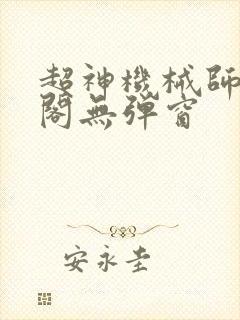 超神機械師
閣無弹窗
安永圭